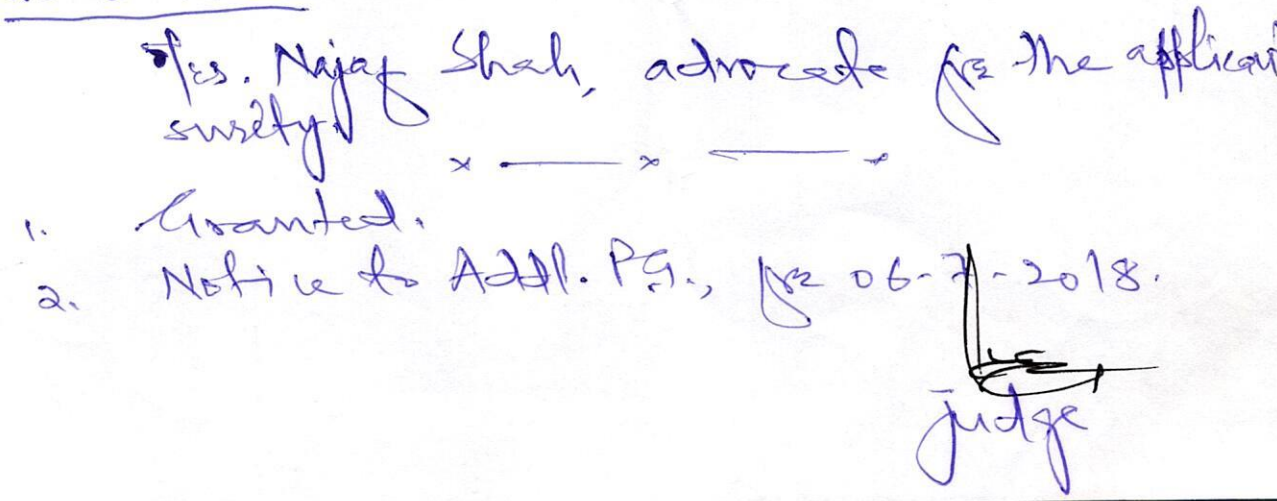 Mrs. Najaf Shah, advocate for the applicant
surety.
x — x —
1. Granted.
2. Notice to Addl. P.G., for 06-7-2018.
judge